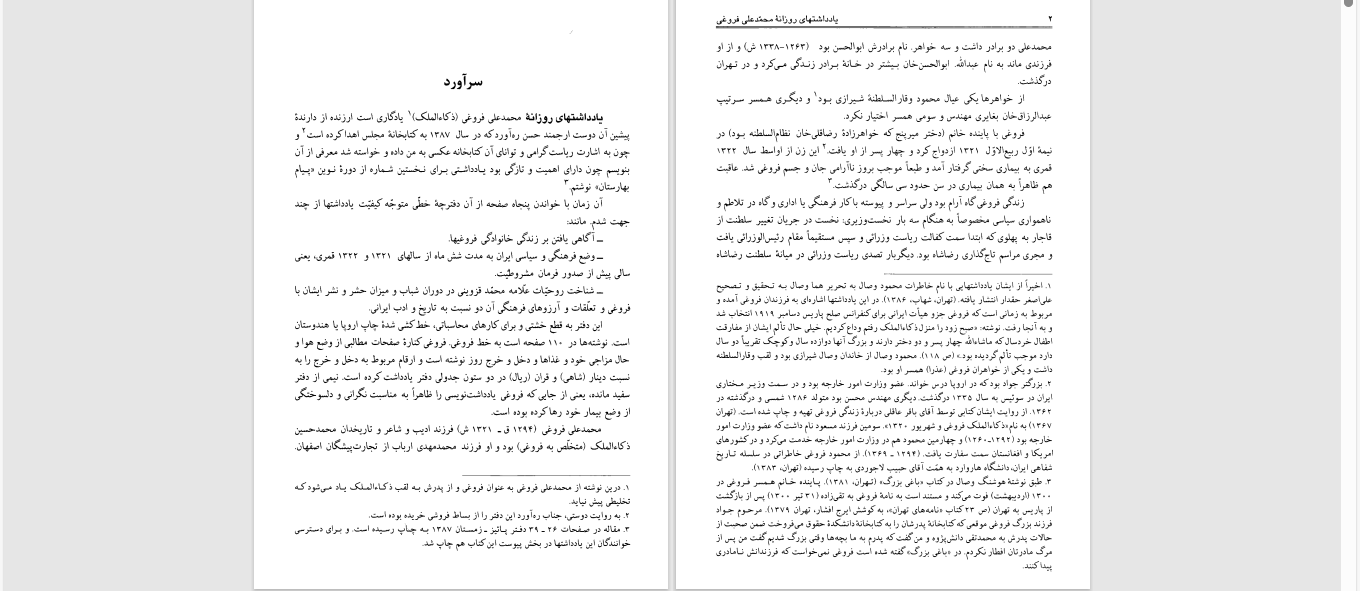 سرآورد
یادداشتهای روزانهٔ محمدعلی فروغی (ذکاءالملک)۱ یادگاری است ارزنده از دارندهٔ
پیشین آن دوست ارجمند حسن ره‌آورد که در سال ۱۳۸۷ به کتابخانهٔ مجلس اهدا کرده است۲ و
چون به اشارت ریاست گرامی و توانای آن کتابخانه عکسی به من داده و خواسته شد معرفی از آن
بنویسم چون دارای اهمیت و تازگی بود یادداشتی برای نخستین شماره از دورهٔ نوین «پیام
بهارستان» نوشتم.۳
آن زمان با خواندن پنجاه صفحه از آن دفترچهٔ خطّی متوجّه کیفیّت یادداشتها از چند
جهت شدم. مانند:
ـ آگاهی یافتن بر زندگی خانوادگی فروغیها.
ـ وضع فرهنگی و سیاسی ایران به مدت شش ماه از سالهای ۱۳۲۱ و ۱۳۲۲ قمری، یعنی
سالی پیش از صدور فرمان مشروطیّت.
ـ شناخت روحیّات علّامه محمّد قزوینی در دوران شباب و میزان حشر و نشر ایشان با
فروغی و تعلّقات و آرزوهای فرهنگی آن دو نسبت به تاریخ و ادب ایرانی.
این دفتر به قطع خشتی و برای کارهای محاسباتی، خط‌کشی شدهٔ چاپ اروپا یا هندوستان
است. نوشته‌ها در ۱۱۰ صفحه است به خط فروغی. فروغی کنارهٔ صفحات مطالبی از وضع هوا و
حال مزاجی خود و غذاها و دخل و خرج روز نوشته است و ارقام مربوط به دخل و خرج را به
نسبت دینار (شاهی) و قران (ریال) در دو ستون جدولی دفتر یادداشت کرده است. نیمی از دفتر
سفید مانده، یعنی از جایی که فروغی یادداشت‌نویسی را ظاهراً به مناسبت نگرانی و دلسوختگی
از وضع بیمار خود رها کرده بوده است.
محمدعلی فروغی (۱۲۹۴ ق ـ ۱۳۲۱ ش) فرزند ادیب و شاعر و تاریخدان محمدحسین
ذکاءالملک (متخلّص به فروغی) بود و او فرزند محمدمهدی ارباب از تجارت‌پیشگان اصفهان.
۱. درین نوشته از محمدعلی فروغی به عنوان فروغی و از پدرش به لقب ذکاءالملک یاد می‌شود که
تخلیطی پیش نیاید.
۲. به روایت دوستی، جناب ره‌آورد این دفتر را از بساط فروشی خریده بوده است.
۳. مقاله در صفحات ۲۶ ـ ۳۹ دفتر پائیز ـ زمستان ۱۳۸۷ به چاپ رسیده است. و برای دسترسی
خوانندگان این یادداشتها در بخش پیوست این کتاب هم چاپ شد.
۲ یادداشتهای روزانهٔ محمّدعلی فروغی
محمدعلی دو برادر داشت و سه خواهر. نام برادرش ابوالحسن بود (۱۲۶۳-۱۳۳۸ ش) و از او
فرزندی ماند به نام عبدالله. ابوالحسن‌خان بیشتر در خانهٔ برادر زندگی می‌کرد و در تهران
درگذشت.
از خواهرها یکی عیال محمود وقارالسلطنهٔ شیرازی بود۱ و دیگری همسر سرتیپ
عبدالرزاق‌خان بغایری مهندس و سومی همسر اختیار نکرد.
فروغی با پاینده خانم (دختر میرپنج که خواهرزادهٔ رضاقلی‌خان نظام‌السلطنه بود) در
نیمهٔ اوّل ربیع‌الاوّل ۱۳۲۱ ازدواج کرد و چهار پسر از او یافت.۲ این زن از اواسط سال ۱۳۲۲
قمری به بیماری سختی گرفتار آمد و طبعاً موجب بروز ناآرامی جان و جسم فروغی شد. عاقبت
هم ظاهراً به همان بیماری در سن حدود سی سالگی درگذشت.۳
زندگی فروغی گاه آرام بود ولی سراسر و پیوسته با کار فرهنگی یا اداری و گاه در تلاطم و
ناهمواری سیاسی مخصوصاً به هنگام سه بار نخست‌وزیری: نخست در جریان تغییر سلطنت از
قاجار به پهلوی که ابتدا سمت کفالت ریاست وزرائی و سپس مستقیماً مقام رئیس‌الوزرائی یافت
و مجری مراسم تاج‌گذاری رضاشاه بود. دیگربار تصدی ریاست وزرائی در میانهٔ سلطنت رضاشاه
۱. اخیراً از ایشان یادداشتهایی با نام خاطرات محمود وصال به تحریر هما وصال به تحقیق و تصحیح
علی‌اصغر حقدار انتشار یافته. (تهران، شهاب، ۱۳۸۶). در این یادداشتها اشاره‌ای به فرزندان فروغی آمده و
مربوط به زمانی است که فروغی جزو هیأت ایرانی برای کنفرانس صلح پاریس دسامبر ۱۹۱۹ انتخاب شد
و به آنجا رفت. نوشته: «صبح زود را منزل ذکاءالملک رفتم وداع کردیم. خیلی حال تألم ایشان از مفارقت
اطفال خردسال که ماشاءالله چهار پسر و دو دختر دارند و بزرگ آنها دوازده سال و کوچک تقریباً دو سال
دارد موجب تألم گردیده بود.» (ص ۱۱۸). محمود وصال از خاندان وصال شیرازی بود و لقب وقارالسلطنه
داشت و یکی از خواهران فروغی (عذرا) همسر او بود.
۲. بزرگتر جواد بود که در اروپا درس خواند. عضو وزارت امور خارجه بود و در سمت وزیر مختاری
ایران در سوئیس به سال ۱۳۳۵ درگذشت. دیگری مهندس محسن بود متولد ۱۲۸۶ شمسی و درگذشته در
۱۳۶۲. از روایت ایشان کتابی توسط آقای باقر عاقلی دربارهٔ زندگی فروغی تهیه و چاپ شده است. (تهران
۱۳۶۷) به نام «ذکاءالملک فروغی و شهریور ۱۳۲۰». سومین فرزند مسعود نام داشت که عضو وزارت امور
خارجه بود (۱۲۹۲-۱۲۶۰) و چهارمین محمود هم در وزارت امور خارجه خدمت می‌کرد و در کشورهای
امریکا و افغانستان سمت سفارت یافت. (۱۲۹۴ ـ ۱۳۶۹). از محمود فروغی خاطراتی در سلسله تاریخ
شفاهی ایران، دانشگاه هاروارد به همّت آقای حبیب لاجوردی به چاپ رسیده (تهران، ۱۳۸۳).
۳. طبق نوشتهٔ هوشنگ وصال در کتاب «باغی بزرگ» (تهران، ۱۳۸۱). پاینده خانم همسر فروغی در
۱۳۰۰ (اردیبهشت) فوت می‌کند و مستند است به نامهٔ فروغی به تقی‌زاده (۳۱ تیر ۱۳۰۰) پس از بازگشت
از پاریس به تهران (ص ۲۳ کتاب «نامه‌های تهران»، به کوشش ایرج افشار، تهران ۱۳۷۹). مرحوم جواد
فرزند بزرگ فروغی موقعی که کتابخانهٔ پدرشان را به کتابخانهٔ دانشکدهٔ حقوق می‌فروخت ضمن صحبت از
حالات پدرش به محمدتقی دانش‌پژوه و من گفت که پدرم به ما بچه‌ها وقتی بزرگ شدیم گفت من پس از
مرگ مادرتان افطار نکردم. در «باغی بزرگ» گفته شده است فروغی نمی‌خواست که فرزندانش نامادری
پیدا کنند.